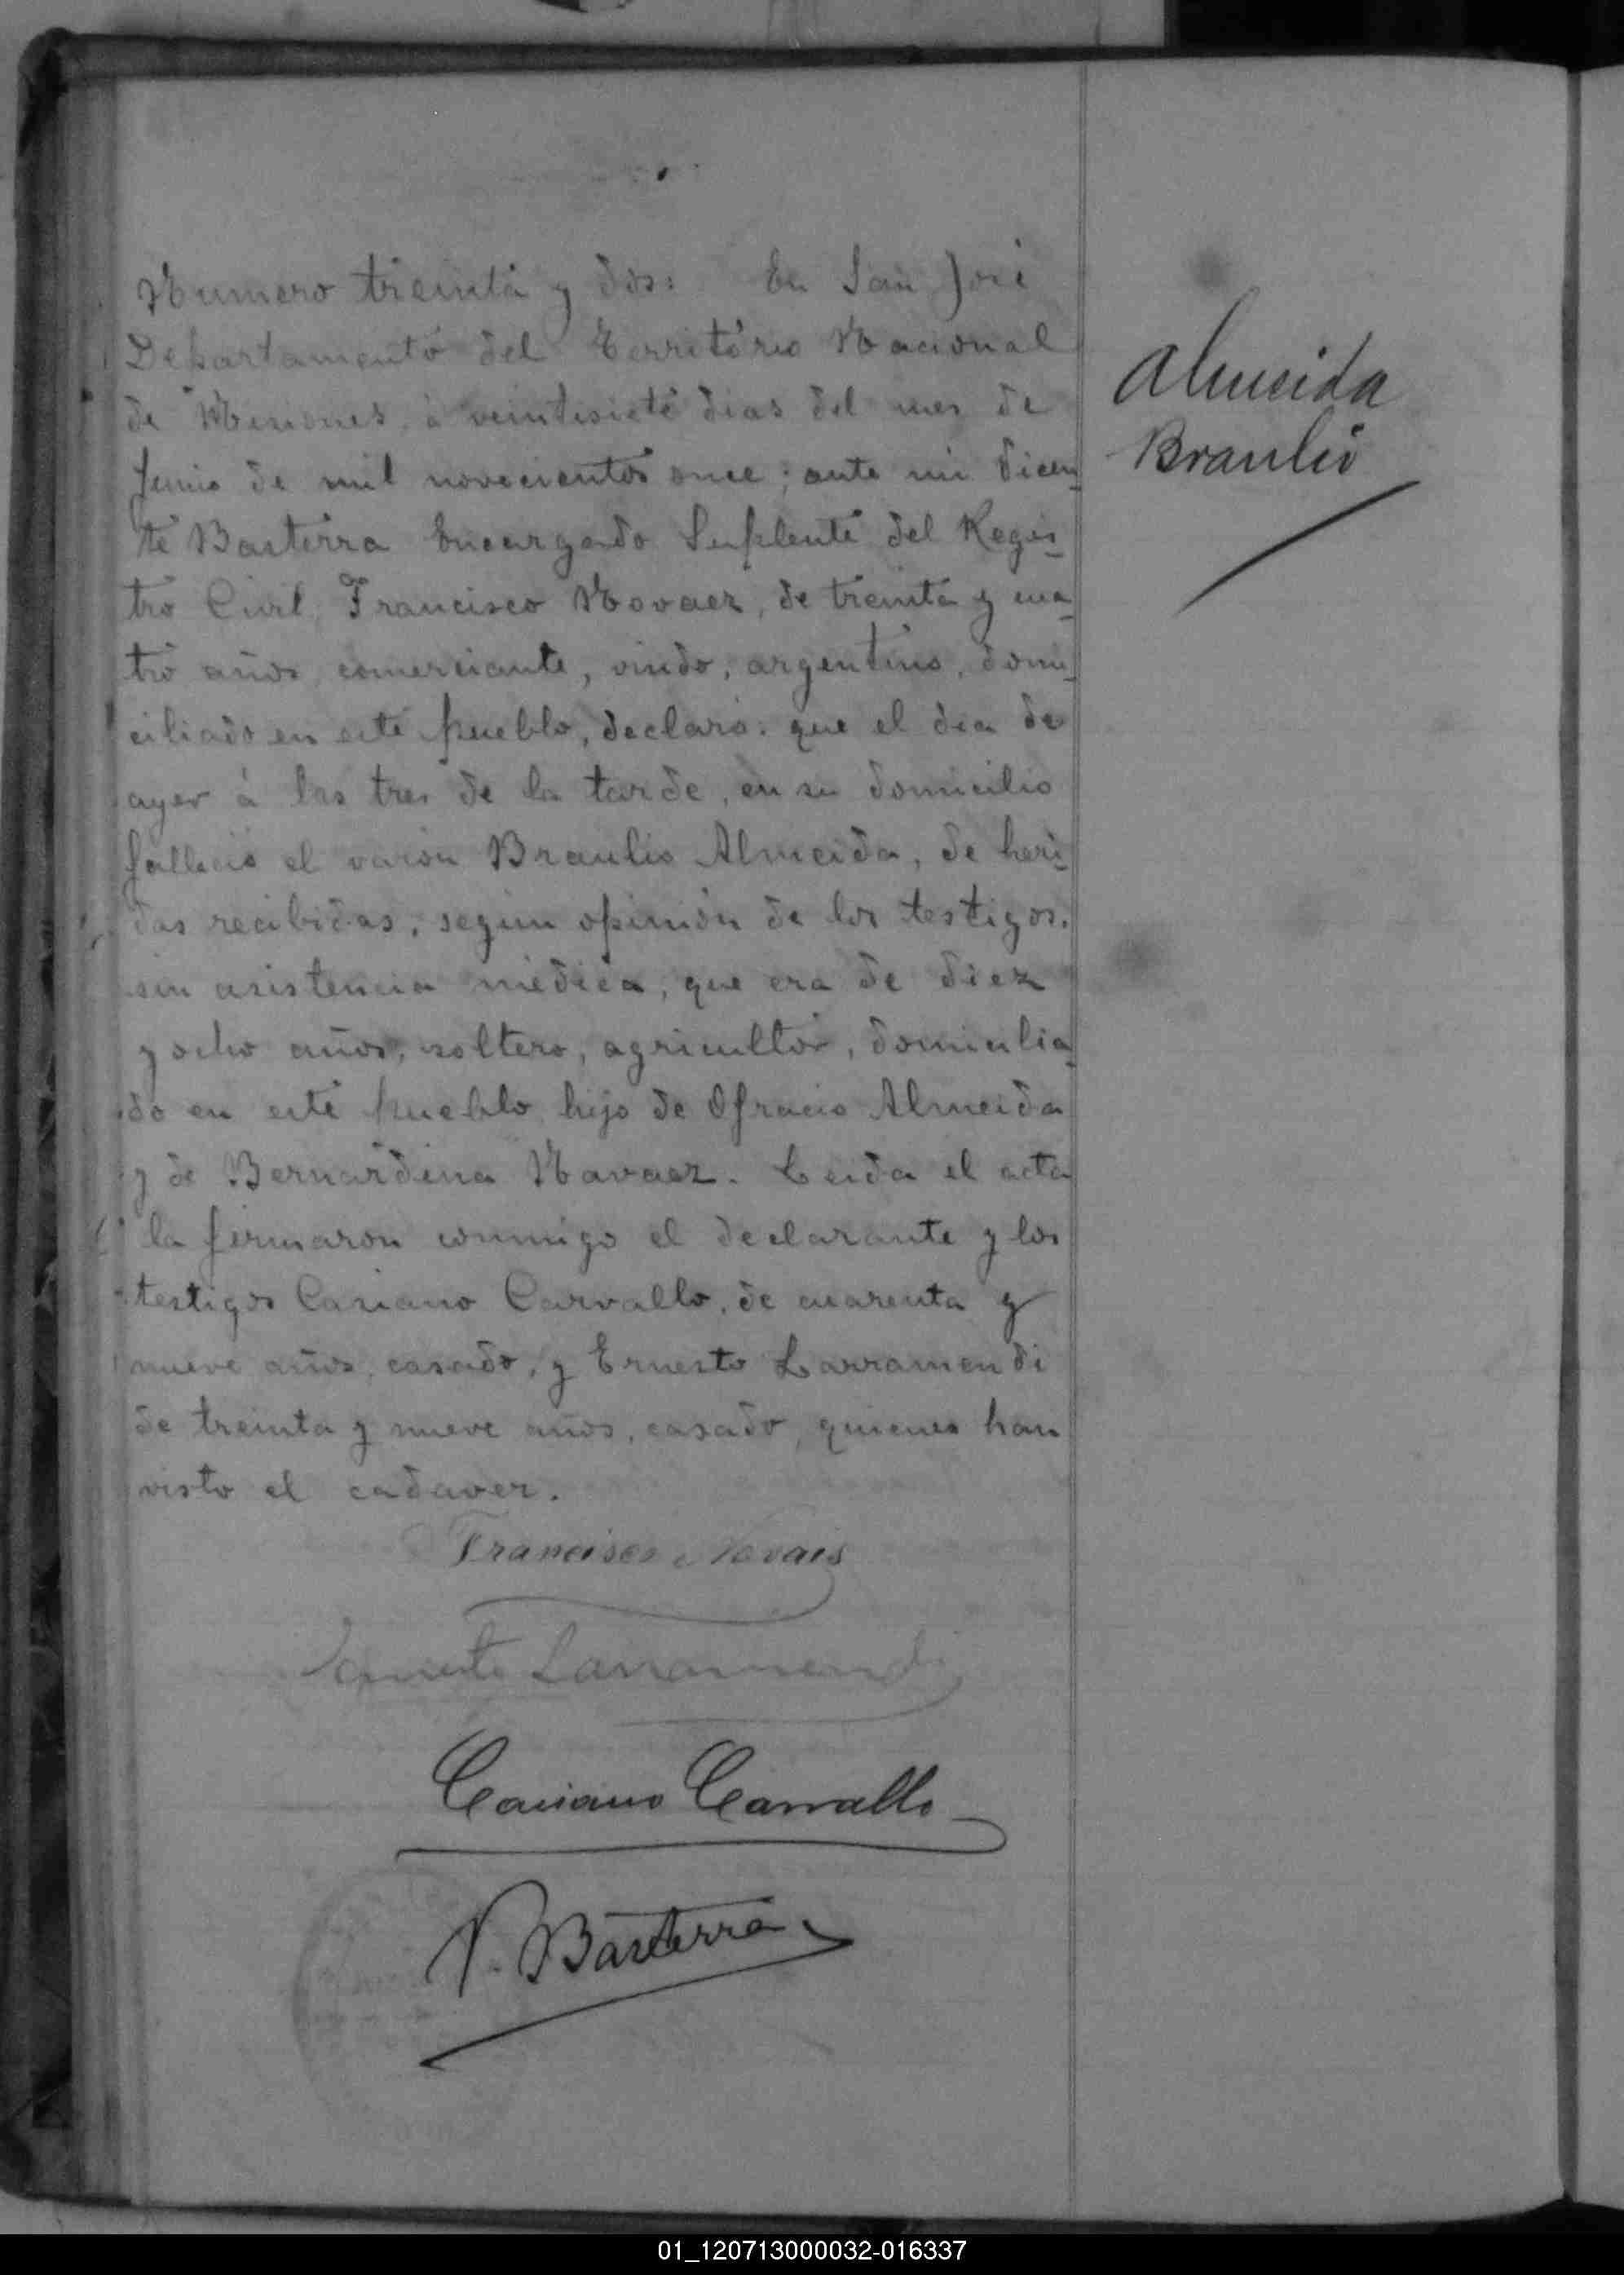 Numero treinta y dos: En San José
Departamento del Territorio Nacional
de Misiones, á veintisiete dias del mes de
Junio de mil novecientos once; ante mi Vicen-
te Basterra Encargado Suplente del Regis-
tro Civil, Francisco Novaez, de treinta y cua-
tro años, comerciante, viudo, argentino, domi-
ciliado en este pueblo, declaró: que el dia de
ayer á las tres de la tarde, en su domicilio
falleció el varon Braulio Almeida, de heri-
das recibidas, segun opinión de los testigos.
sin asistencia médica, que era de diez
y ocho años, soltero, agricultor, domicilia-
do en este pueblo, hijo de Ofracio Almeida
y de Bernardina Navaez. Leida el acta
la firmaron conmigo el declarante y los
testigos Casiano Carvallo, de cuarenta y
nueve años, casado, y Ernesto Larramendi
de treinta y nueve años, casado, quienes han
visto el cadaver.
Francisco Novais
Ernesto Larramendi
Casiano Carvallo
V. Basterra
Almeida
Braulio
01_120713000032-016337